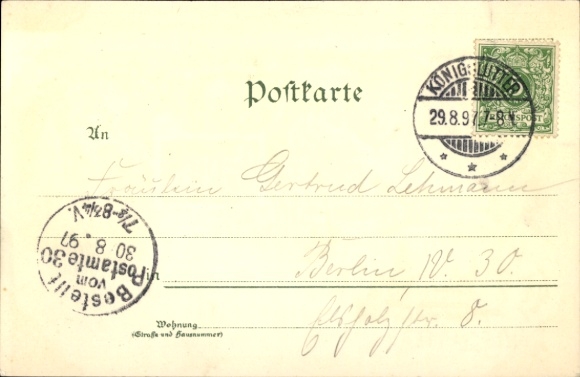 Postkarte
KÖNIGSLUTTER
29.8.97.7-8V.
REICHSPOST
An
Fräulein Gertrud Lehmann
in Berlin W. 30.
Wohnung
(Straße und Hausnummer)
Elßholzstr. 8.
Bestellt
vom
Postamte 30
30 8.97
7¼-8¼V.